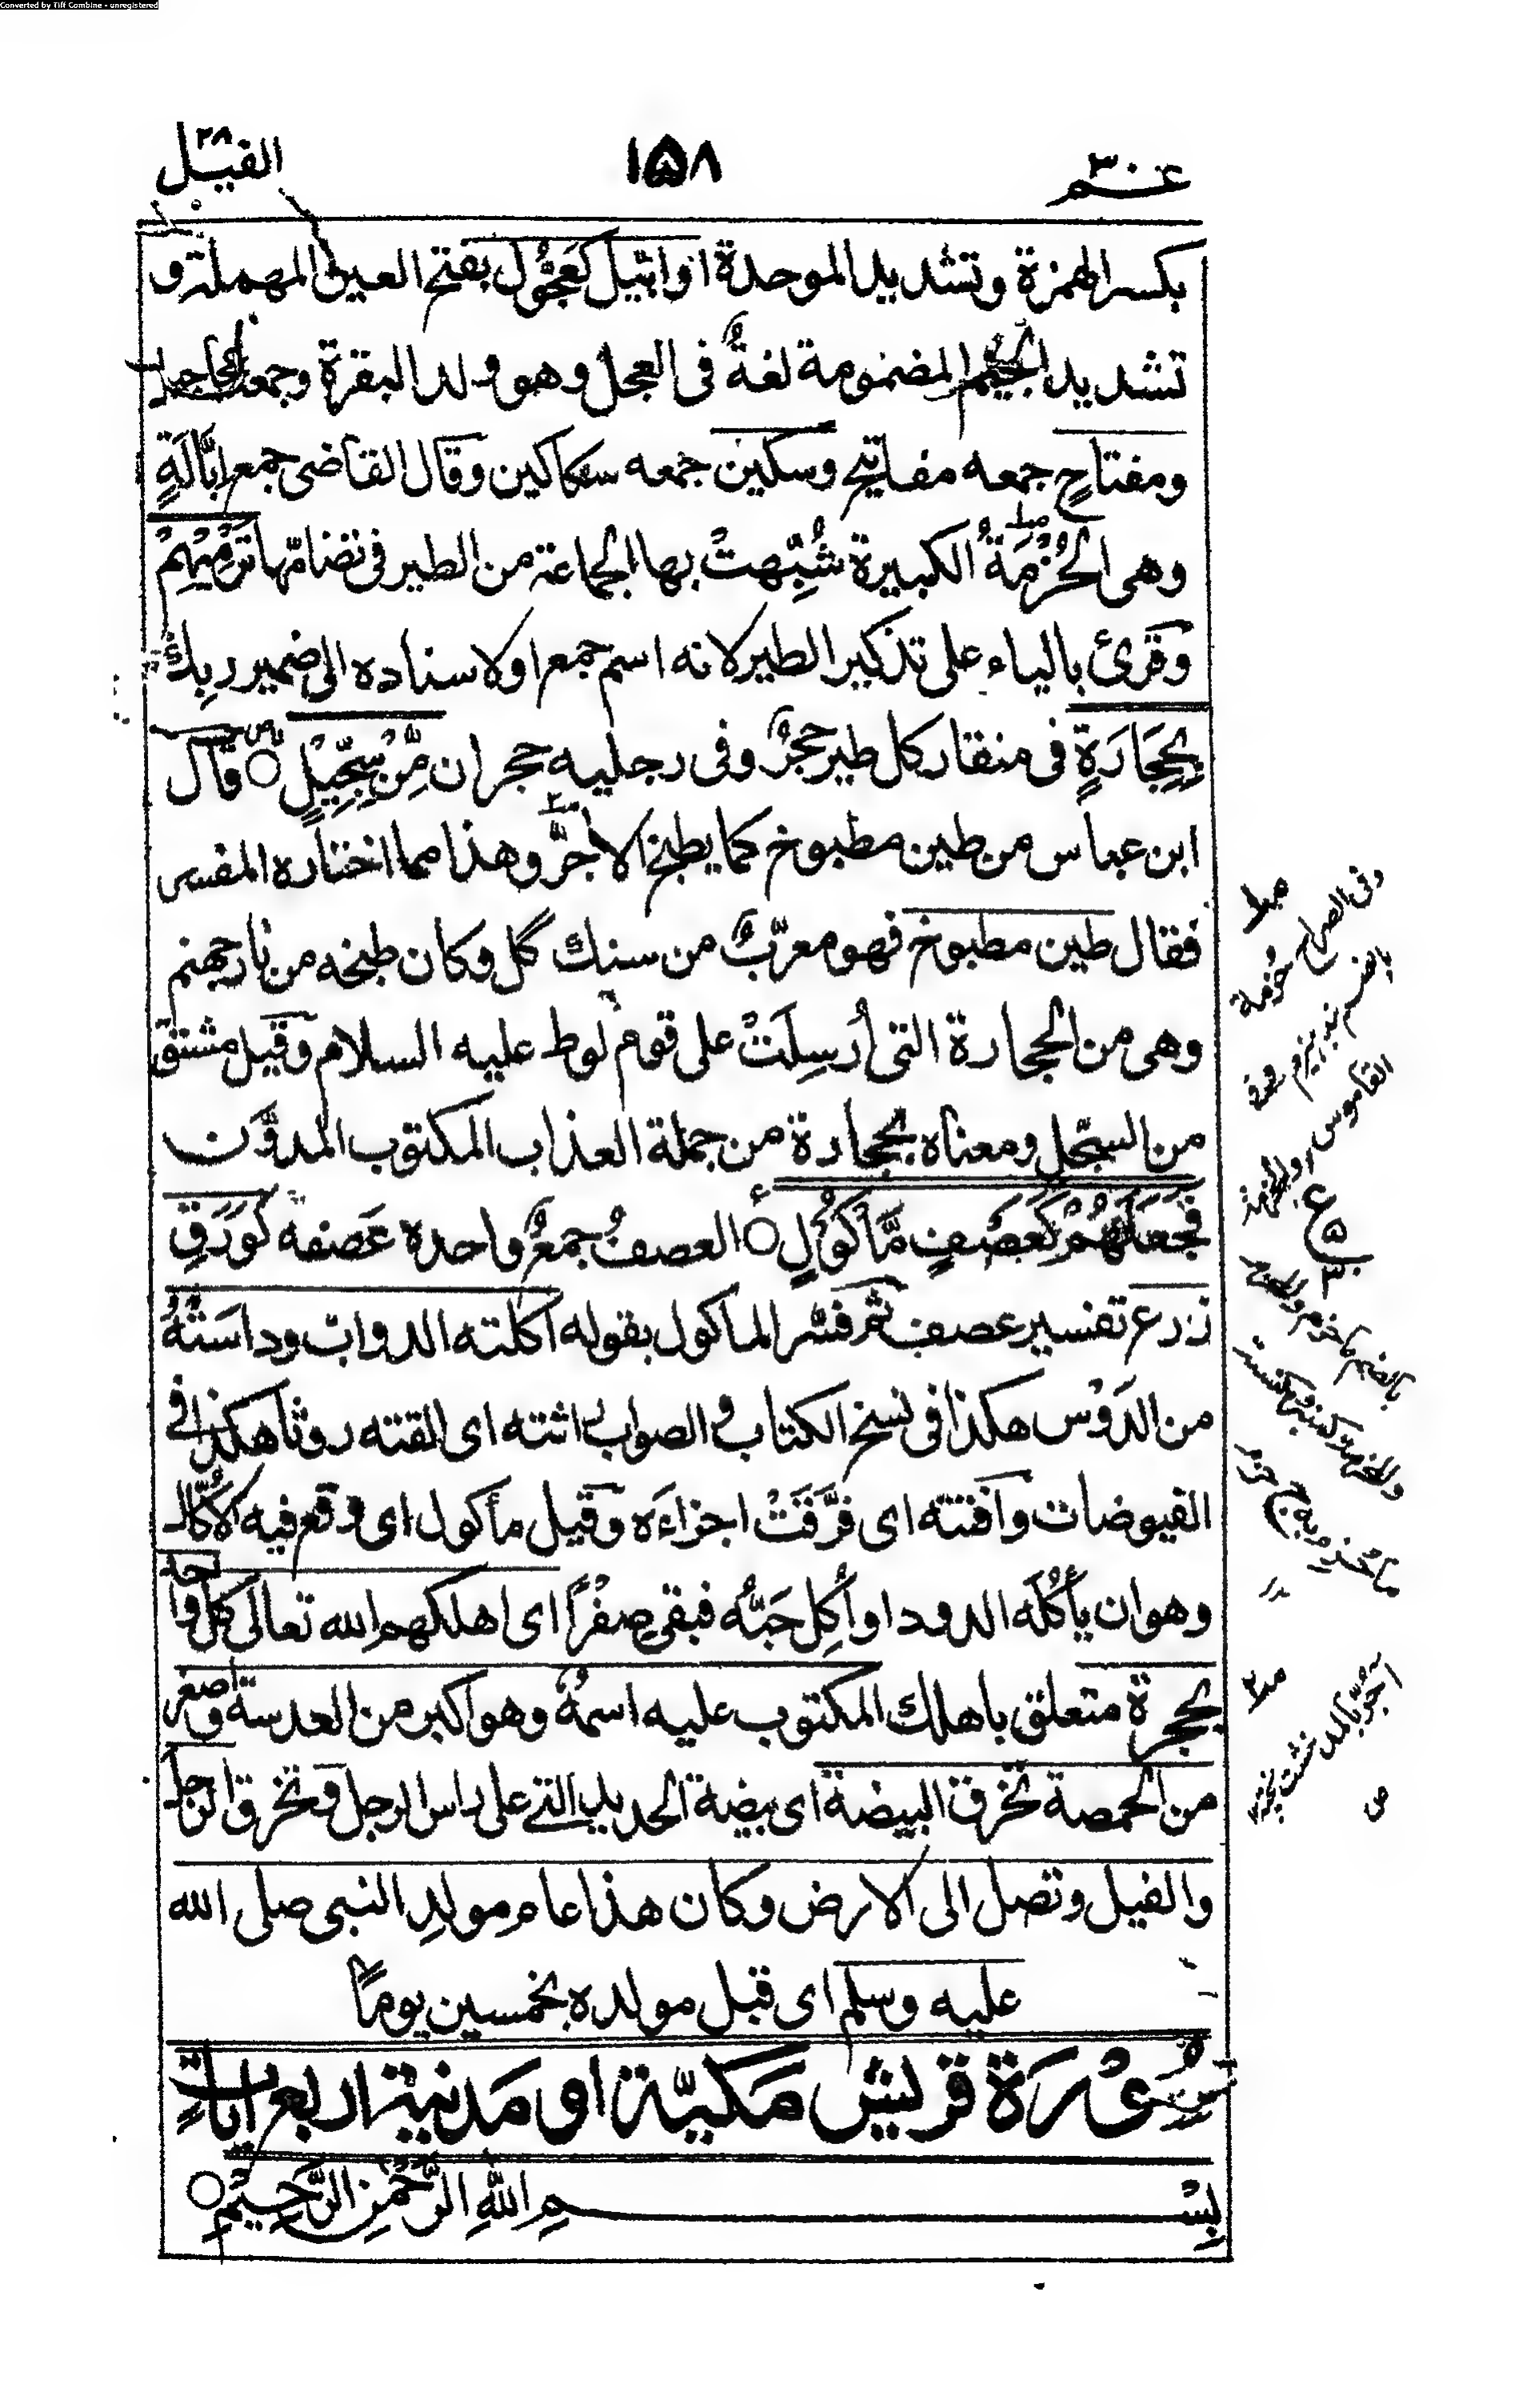 Converted by Tiff Combine - unregistered
عم ٣٠
١٥٨
الفيل
بكسر الهمزة وتشديد الموحدة او ابيل كعجول بفتح العين المهملة و
تشديد الجيم المضمومة لغة في العجل وهو ولد البقرة وجمعه عجاجيل
ومفتاح جمعه مفاتيح وسكين جمعه سكاكين وقال القاضى جمع ابّالة
وهى الحُزْمَةُ الكبيرة شُبِّهتْ بها الجماعة من الطير فى تضامّها تَرْمِيْهِمْ
وقرئ بالياء على تذكير الطير لانه اسم جمع اولاسناده الى ضمير ربك
بِحِجَارَةٍ فى منقار كل طير حجرٌ وفى رجليه حجران مِّنْ سِجِّيْلٍ ○ قال
ابن عباس من طين مطبوخ كما يطبخ الآجرّ وهذا مما اختاره المفسر
فقال طين مطبوخ فهو معرّبٌ من سنك گل وكان طبخه من نار جهنم
وهى من الحجارة التى أُرسِلَتْ على قوم لوط عليه السلام وقيل مشتق
من السجّل ومعناه بحجارة من جملة العذاب المكتوب المدوَّن
فَجَعَلَهُمْ كَعَصْفٍ مَّأْكُوْلٍ ○ العصفُ جمعٌ واحده عَصفه كورَقِ
زرع تفسير عصف ثم فسّر الماكول بقوله اكلته الدوابّ وداسَتْهُ
من الدَوْس هكذا فى نسخ الكتاب و الصواب راثته اى القته روثا هكذا فى
الفيوضات وافنته اى فرَّقَتْ اجزاءَه وقيل مأكول اى وقع فيه الأُكّال
وهو ان يأكُلَه الدود او أُكِل حَبُّه فبقى صِفْرًا اى اهلكهم الله تعالى كل واحد
بحجرة متعلق باهلك المكتوب عليه اسمهٗ وهو اكبر من العدسة واصغر
من الحمصة تخرق البيضة اى بيضة الحديد التى على راس الرجل وتخرق الرجل
والفيل وتصل الى الارض وكان هذا عام مولدِ النبى صلى الله
عليه وسلم اى قبل مولده بخمسين يومًا
سُوْرَةُ قريش مكيّة او مَدنية اربع اٰيات
بِسْمِ اللّٰهِ الرَّحْمٰنِ الرَّحِيْمِ ○
وفى الصراح حزمة
القاموس
آجرّ بالمد خشت پخته